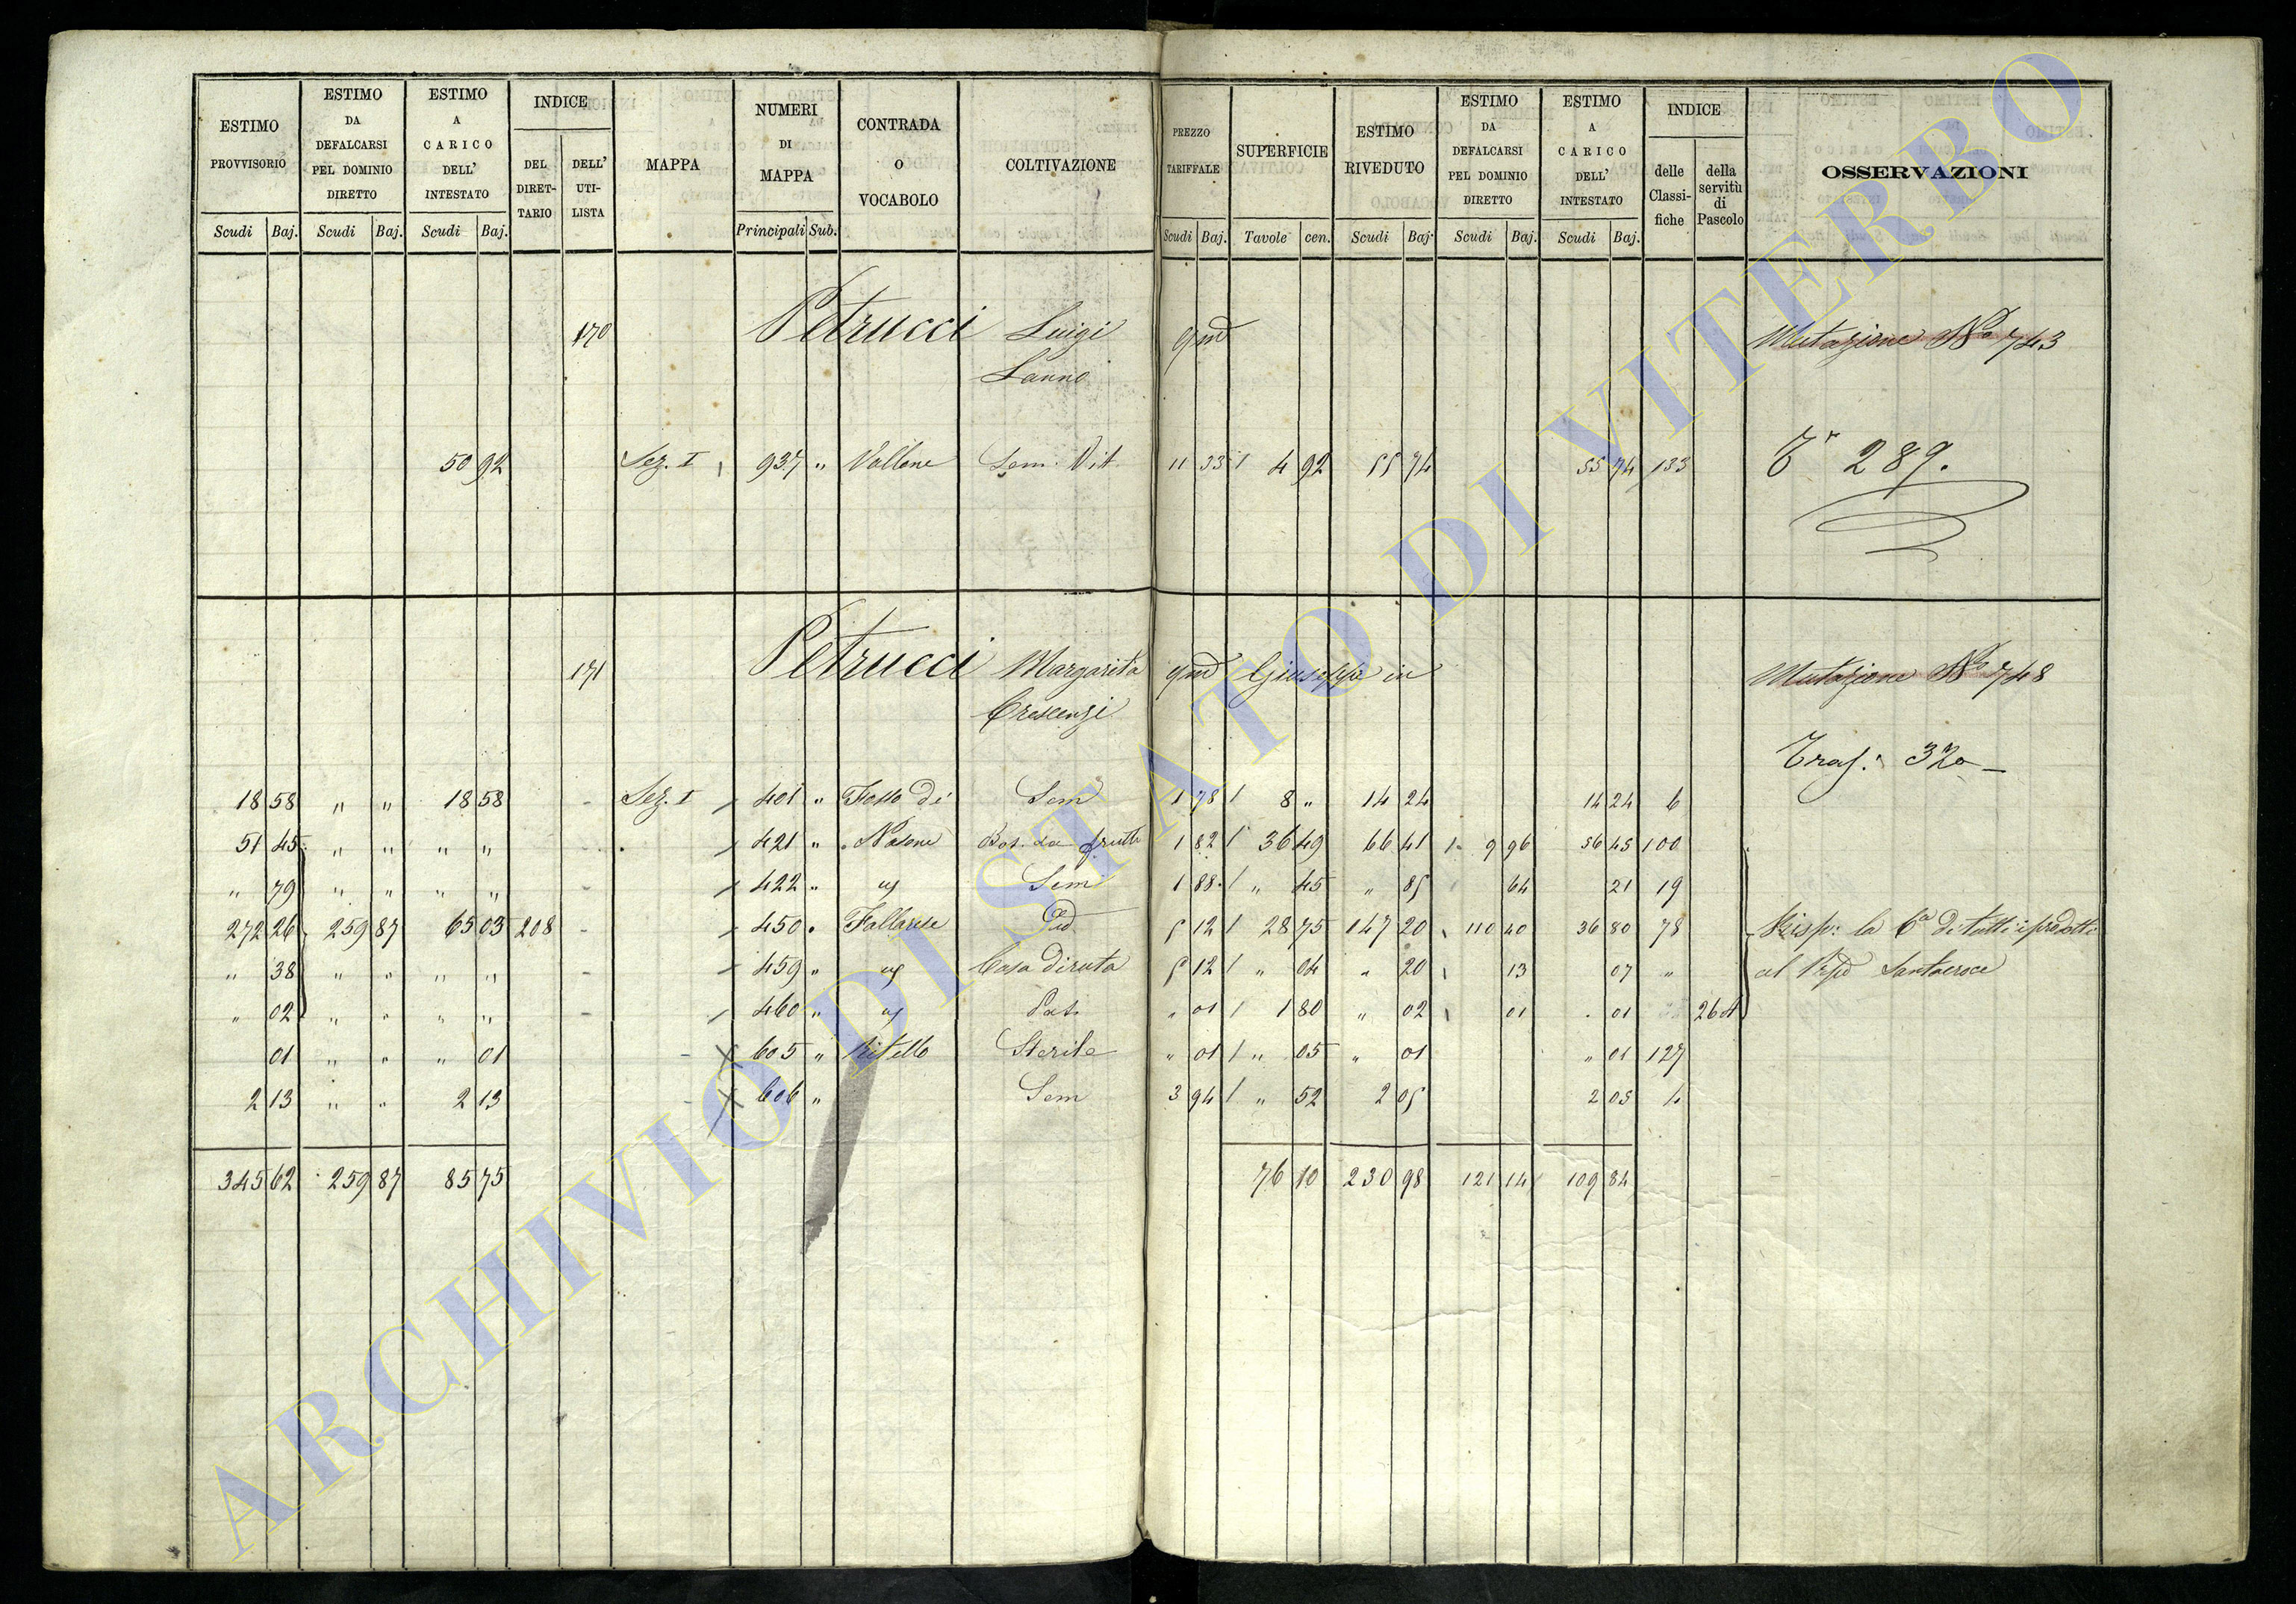 ESTIMO PROVVISORIO | ESTIMO DA DEFALCARSI PEL DOMINIO DIRETTO | ESTIMO A CARICO DELL' INTESTATO | INDICE DEL DIRETTARIO | DELL' UTILISTA | MAPPA | NUMERI DI MAPPA | CONTRADA O VOCABOLO | COLTIVAZIONE | PREZZO TARIFFALE | SUPERFICIE | ESTIMO RIVEDUTO | ESTIMO DA DEFALCARSI PEL DOMINIO DIRETTO | ESTIMO A CARICO DELL' INTESTATO | INDICE delle Classifiche | della servitù di Pascolo | OSSERVAZIONI
Scudi Baj. Scudi Baj. Scudi Baj. Principali Sub. Scudi Baj. Tavole cen. Scudi Baj. Scudi Baj. Scudi Baj.
170 Petrucci Luigi qm Mutazione No 743
Lanno
50 92 Sez. I 937 " Vallone Sem. Vit. 11 33 4 92 55 74 55 74 133 Tr 289.
171 Petrucci Margarita qm Giuseppe in Mutazione No 748
Crescenzi
Trasf: 320
18 58 " " 18 58 Sez. I 401 " Fosso di Sem 1 78 8 " 14 24 14 24 6
51 45 " " " " 421 " Nasone Bos. da frutto 1 82 36 49 66 41 9 96 56 45 100
" 79 " " " " 422 " Sem 1 88 " 45 " 85 64 21 19
272 26 259 87 65 03 208 450 " Fallarese Pid 5 12 28 75 147 20 110 40 36 80 78 Risp: la 6a di tutti i prodotti
" 38 " " " " 459 " Casa diruta 5 12 " 04 " 20 13 07 " al Santacroce
" 02 " " " " 460 " Past. " 01 1 80 " 02 01 " 01 26
01 " " " 01 605 " Ritello Sterile " 01 " 05 " 01 " 01 127
2 13 " " 2 13 606 " Sem 3 94 " 52 2 05 2 05
345 62 259 87 85 75 76 10 230 98 121 14 109 84
ARCHIVIO DI STATO DI VITERBO